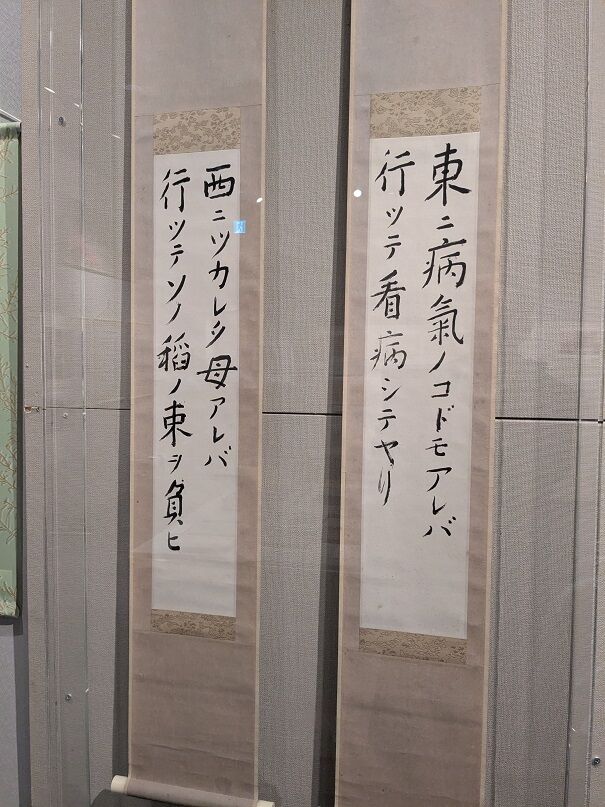 東ニ病氣ノコドモアレバ
行ッテ看病シテヤリ
西ニツカレタ母アレバ
行ッテソノ稲ノ束ヲ負ヒ